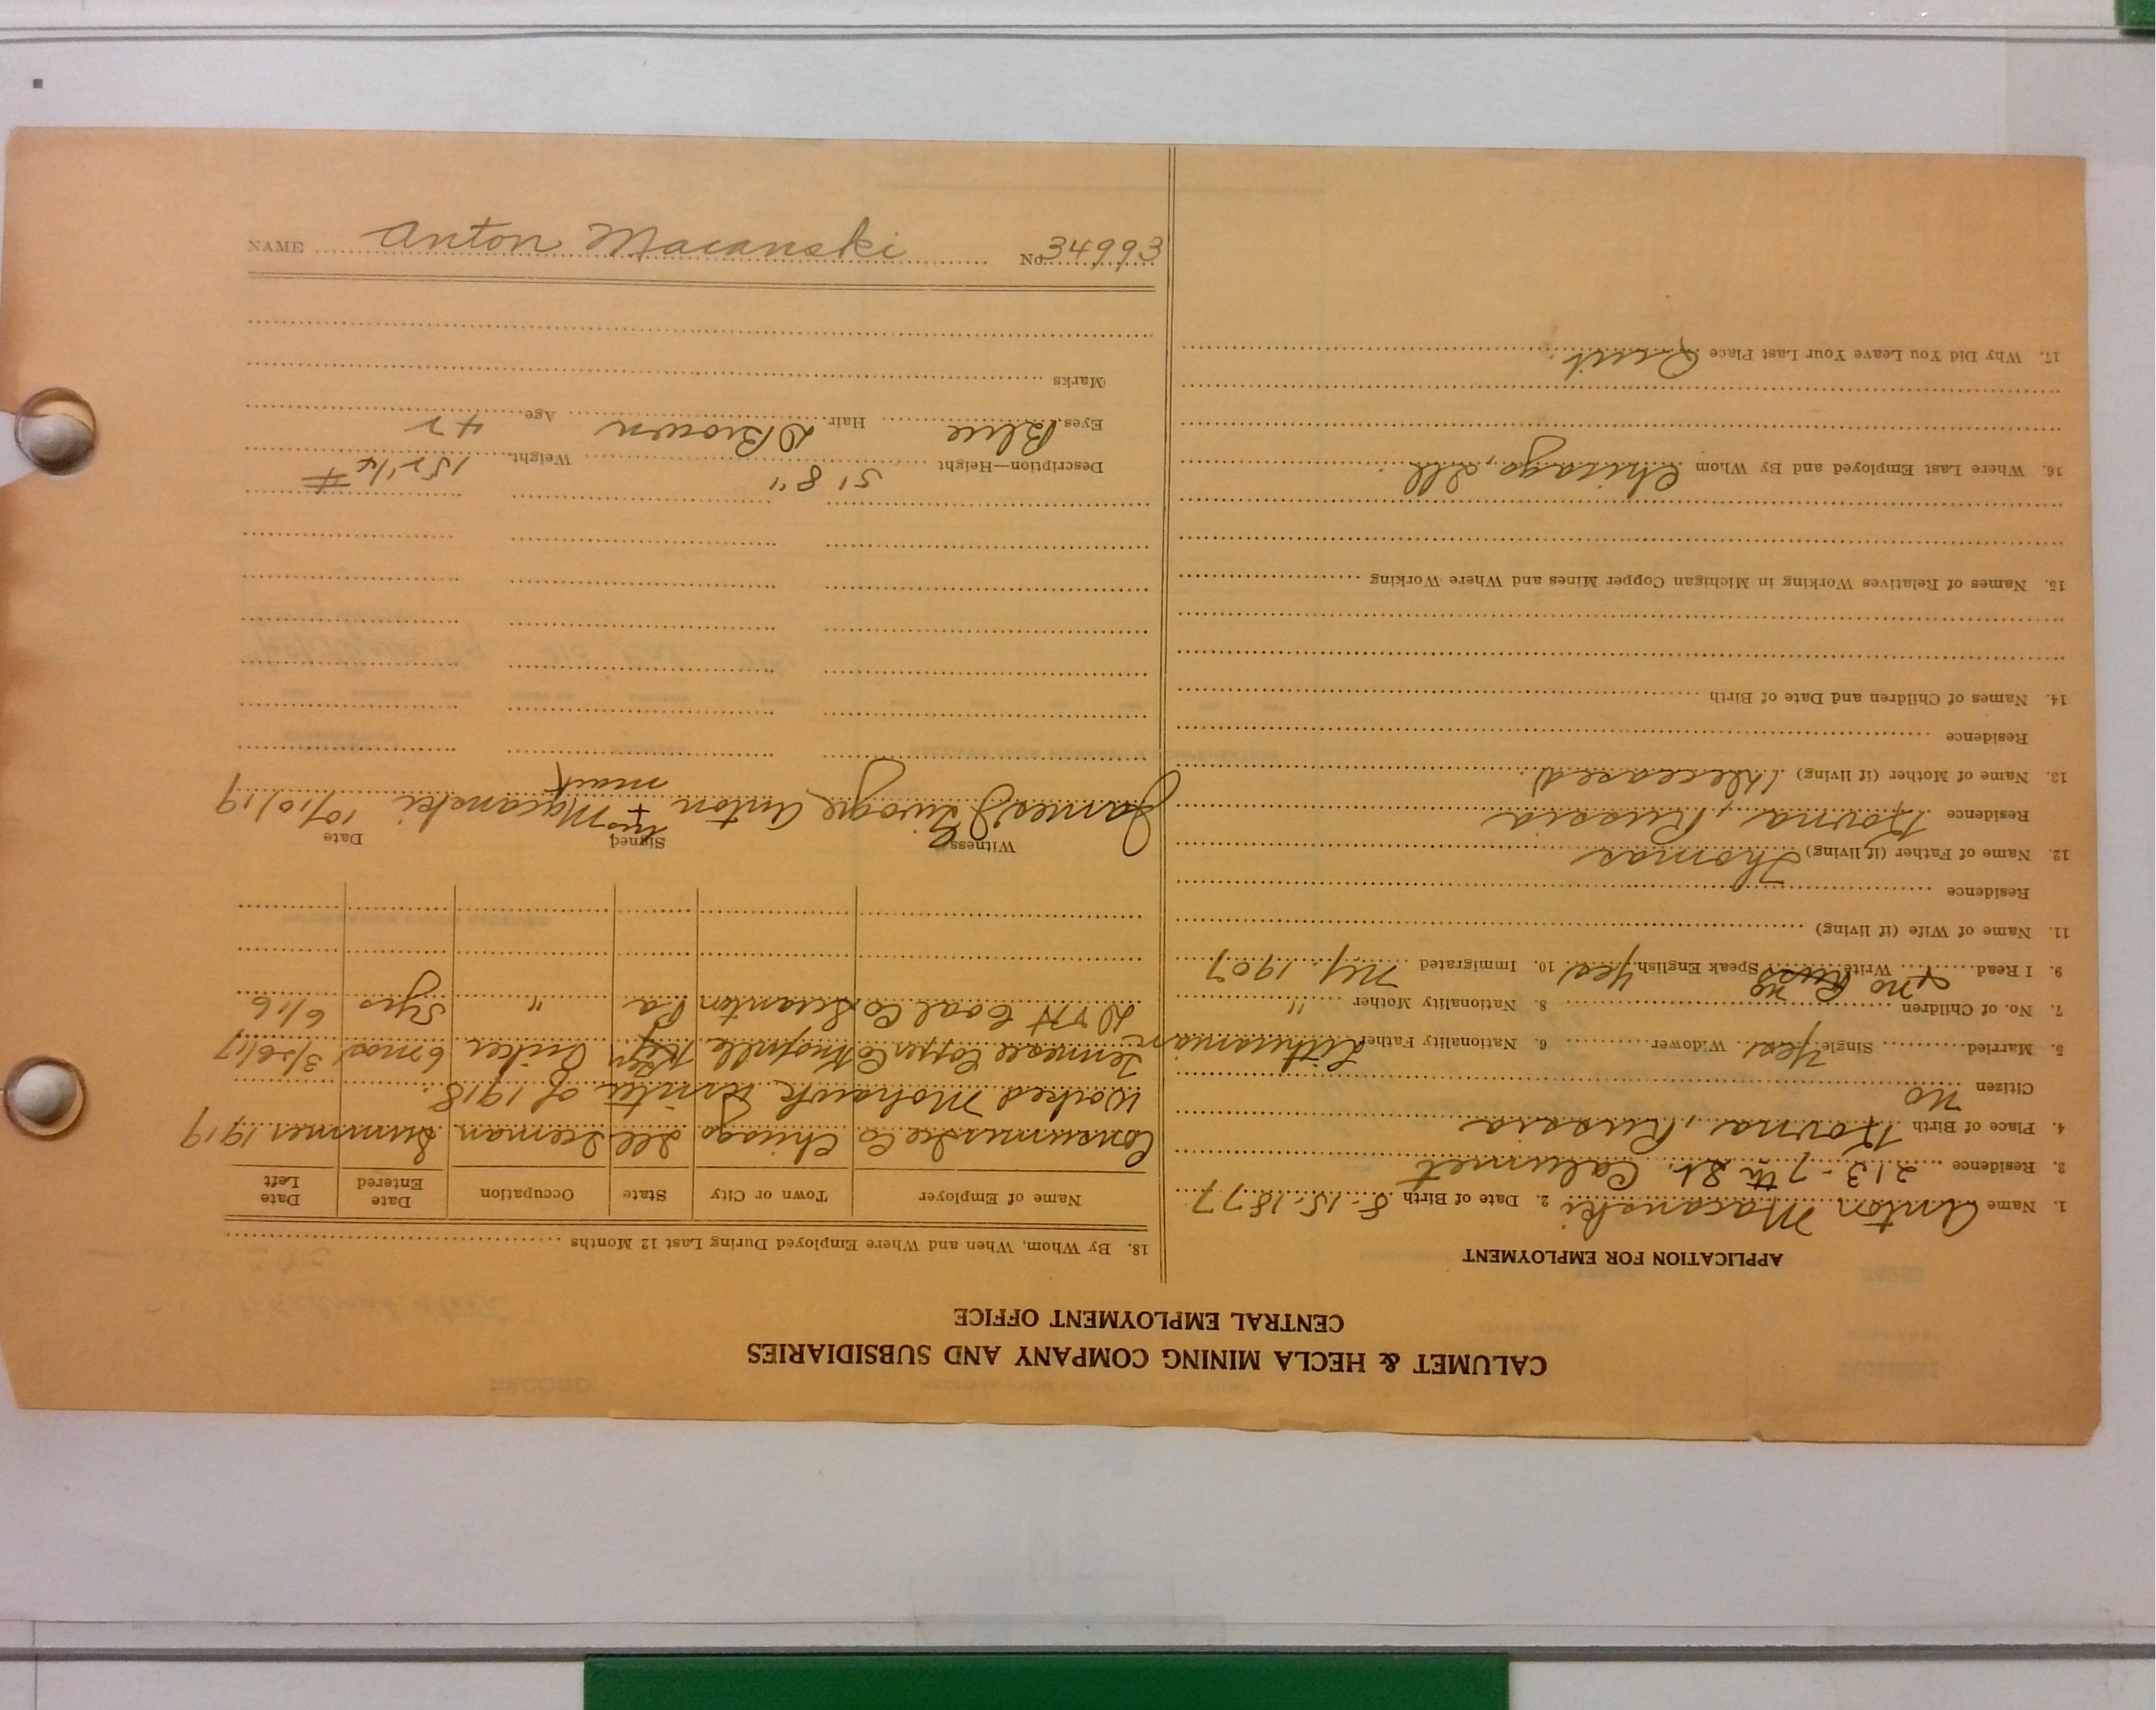 CALUMET & HECLA MINING COMPANY AND SUBSIDIARIES
CENTRAL EMPLOYMENT OFFICE
APPLICATION FOR EMPLOYMENT
1. Name Anton Macanski 2. Date of Birth 8-15-1877
3. Residence 213-7th St. Calumet
4. Place of Birth Kovna, Russia
Citizen no
5. Married Single Yes Widower 6. Nationality Father Lithuanian
7. No. of Children 8. Nationality Mother "
9. I Read no Write no Speak English Yes 10. Immigrated NY. 1907
11. Name of Wife (if living)
Residence
12. Name of Father (if living) Thomas
Residence Kovna, Russia
13. Name of Mother (if living) (deceased)
Residence
14. Names of Children and Date of Birth
15. Names of Relatives Working in Michigan Copper Mines and Where Working
16. Where Last Employed and By Whom Chicago, Ill.
17. Why Did You Leave Your Last Place Quit.
18. By Whom, When and Where Employed During Last 12 Months
Name of Employer Town or City State Occupation Date Entered Date Left
Consumers Ice Co Chicago Ill Iceman Summer 1919
Worked Mohawk Winter of 1918.
Copper Co 6 mos 3/26/17
D & H Coal Co Scranton Pa " 5 yrs 6/16
Witness Signed Date
James Anton his + mark Macanski 10/10/19
Description—Height 5' 8" Weight 152 1/4 #
Eyes Blue Hair D Brown Age 42
Marks
NAME Anton Macanski No. 34993